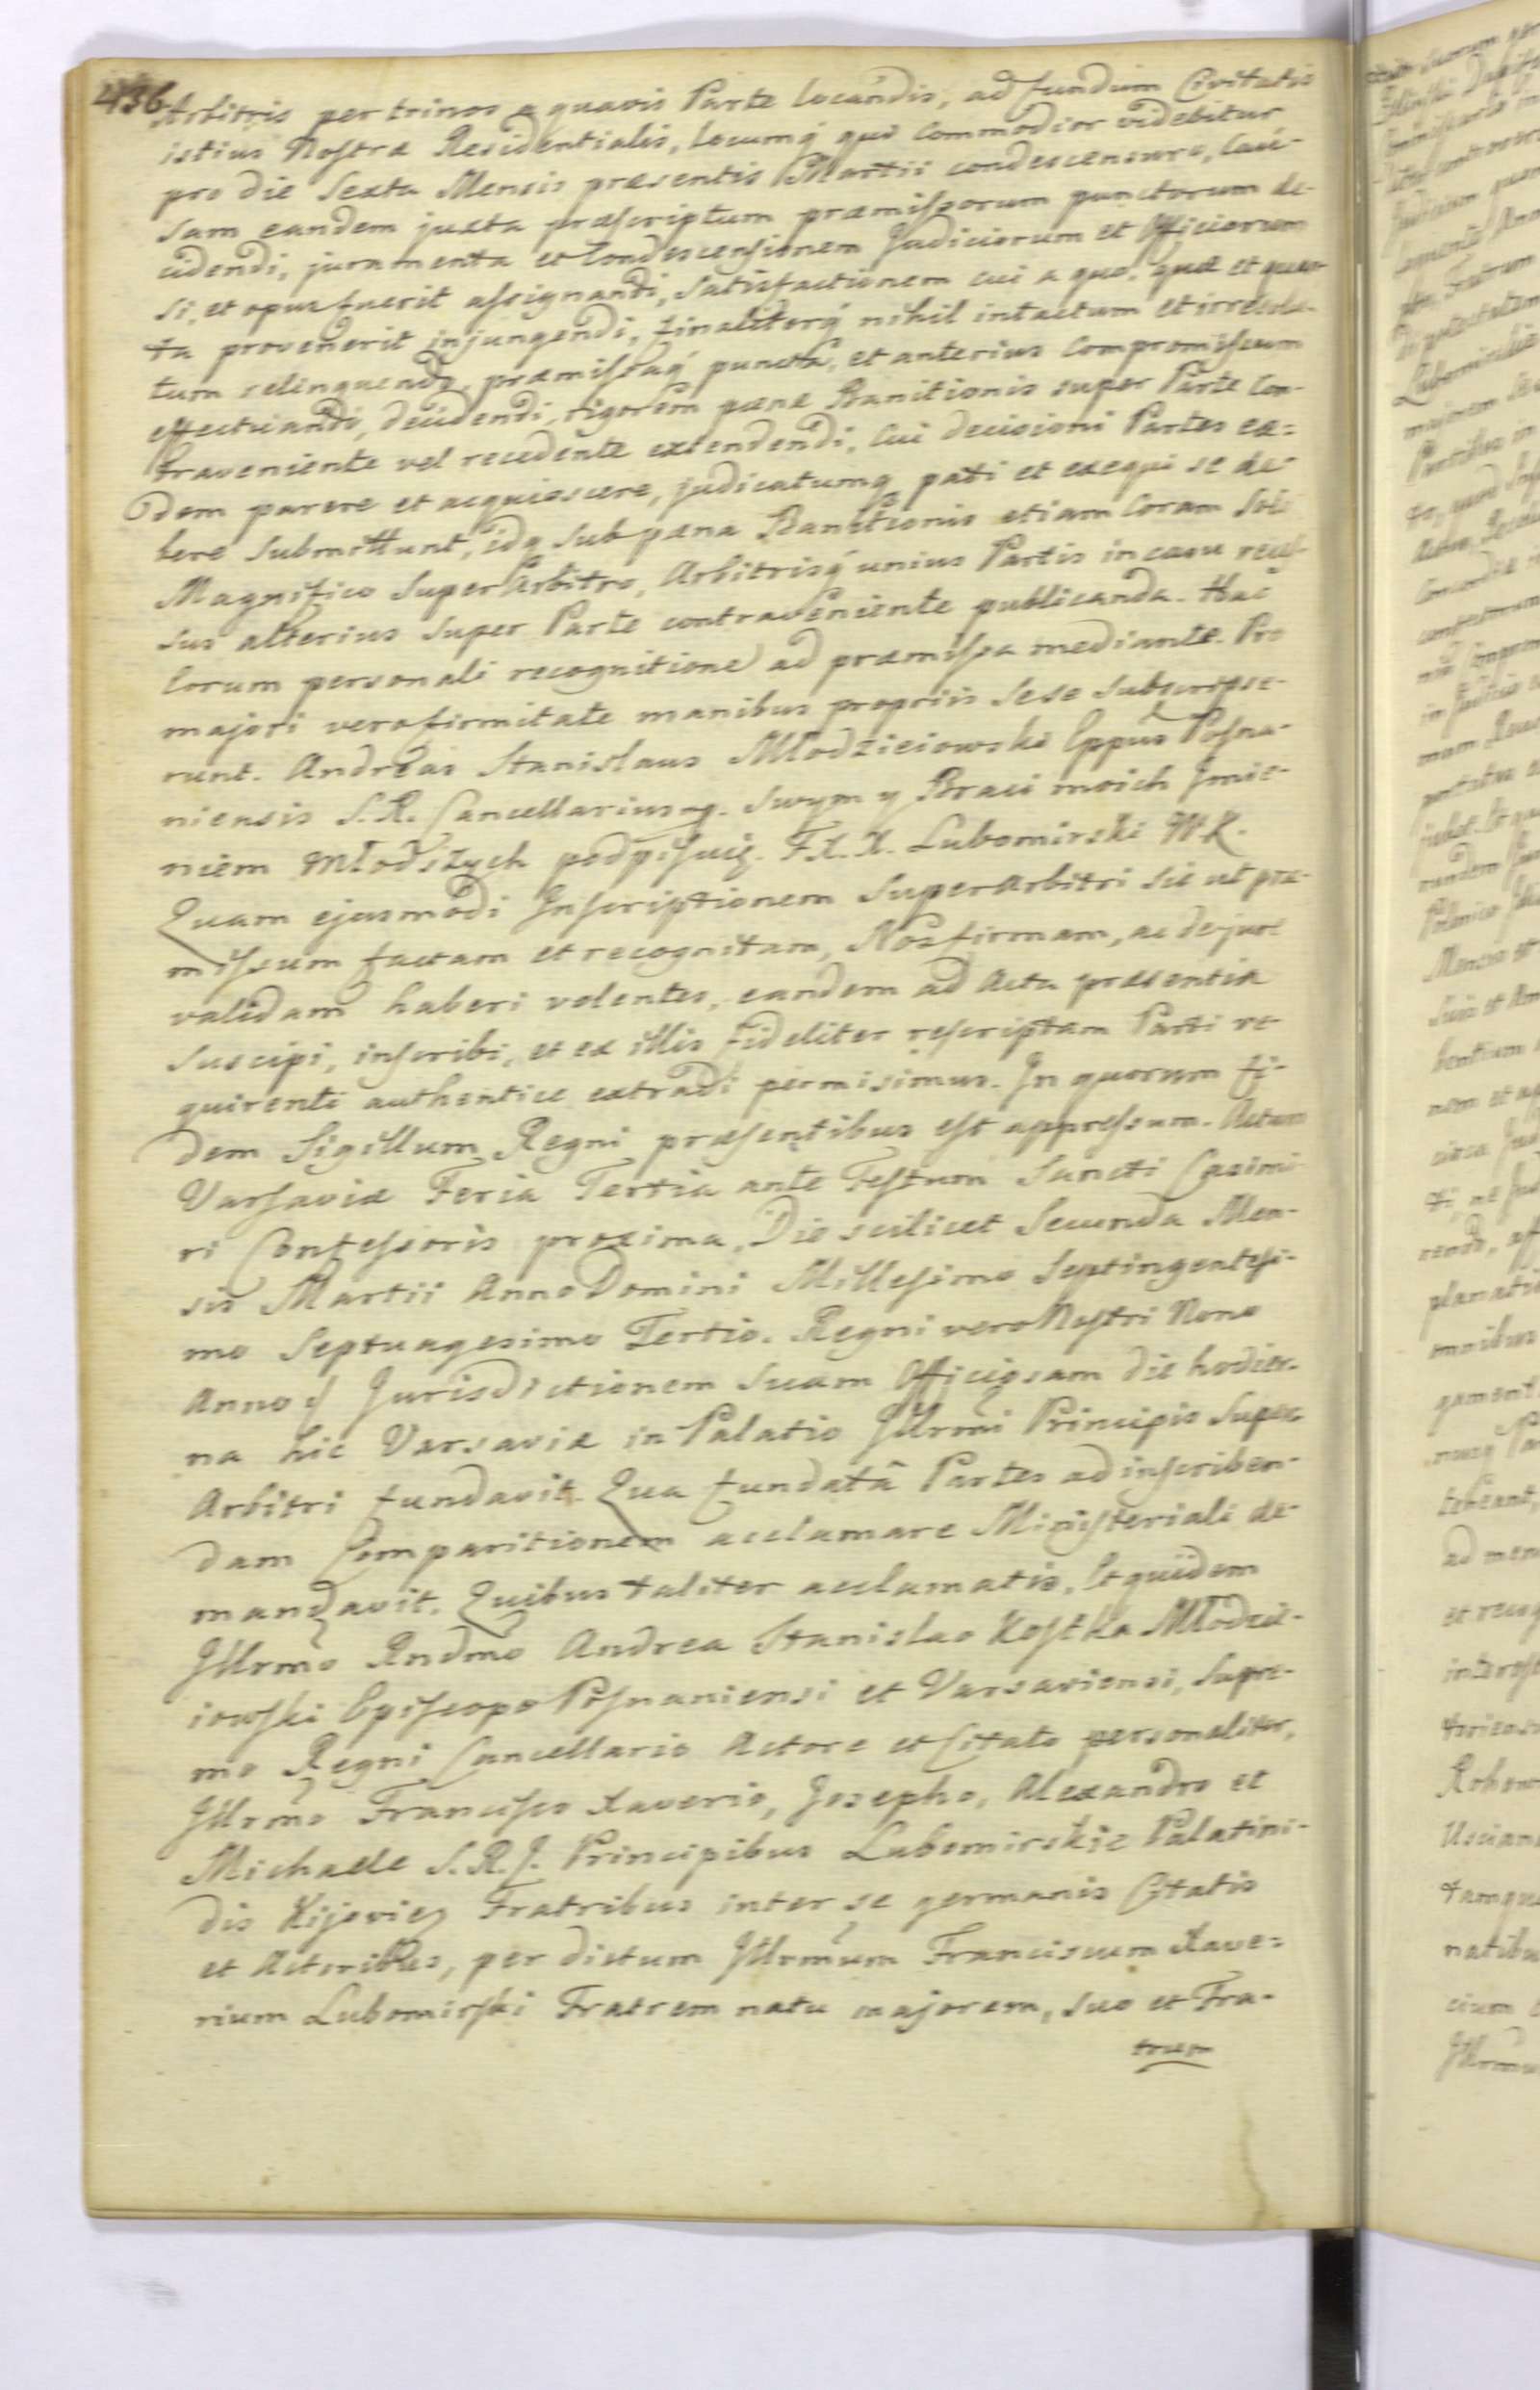 436
Arbitris per trinos a quavis Parte locandis, ad fundum Civitatis
istius Nostræ Residentialis, locumq́ quo commodior videbitur
pro die Sexta Mensis præsentis Martii condescensuro, Cau-
sam eandem juxta præscriptum præmissorum punctorum de-
cidendi, juramenta et Condescensionem Judiciorum et Officiorum
si, et opus fuerit assignandi, Satisfactionem cui a quo, quæ et quan-
ta provenerit injungendi, finaliterq́ nihil intactum et irresolu-
tum relinquendo, præmissaq́ puncta, et anterius Compromissum
effectuandi, decidendi, rigorem pænæ Banitionis super Parte Con-
traveniente vel recedente extendendi, Cui decisioni Partes eæ=
dem parere et acquiescere, judicatumq́ pati et exequi se de-
bere submittunt, idq́ sub pæna Banitionis etiam Coram Solo
Magnifico SuperArbitro, Arbitrisq́ unius Partis in casu reces-
sus alterius super Parte contraveniente publicanda. Hac
Eorum personali recognitione ad præmissa mediante. Pro
majori vero firmitate manibus propriis sese subscripse-
runt. Andreas Stanislaus Młodzieiowski Eppus Posna-
niensis S. R. Cancellarius mp. Swym y Braci moich Jmie-
niem Młodszych podpisuię. F. X. X. Lubomirski WK.
Quam ejusmodi Inscriptionem SuperArbitri sic ut præ-
missum factam et recognitam, Nos firmam, ac de jure
validam haberi volentes, eandem ad Acta præsentia
suscipi, inscribi, et ex illis fideliter rescriptam Parti re-
quirenti authentice extradi permisimus. In quorum fi-
dem Sigillum Regni præsentibus est appressum. Actum
Varsaviæ Feria Tertia ante Festum Sancti Casimi-
ri Confessoris proxima, Die scilicet Secunda Men-
sis Martii Anno Domini Millesimo Septingentesi-
mo Septuagesimo Tertio. Regni vero Nostri Nono
Anno // Jurisdictionem Suam Officiosam die hodier-
na hic Varsaviæ in Palatio Jllrmi Principis Super
Arbitri fundavit. Qua fundatâ Partes ad inscriben-
dam Comparitionem acclamare Ministeriali de-
mandavit. Quibus taliter acclamatis, Et quidem
Jllrmo Rndmo Andrea Stanislao Kostka Młodzie-
iowski Episcopo Posnaniensi et Varsaviensi, Supre-
mo Regni Cancellario Actore et Citato personaliter,
Jllrmo Francisco Xaverio, Josepho, Alexandro et
Michaele S. R. J. Principibus Lubomirskie Palatini-
dis Kijovien Fratribus inter se germanis Citatis
et Actoribus, per dictum Jllrmum Franciscum Xave=
rium Lubomirski Fratrem natu majorem, suo et Fra-
trum